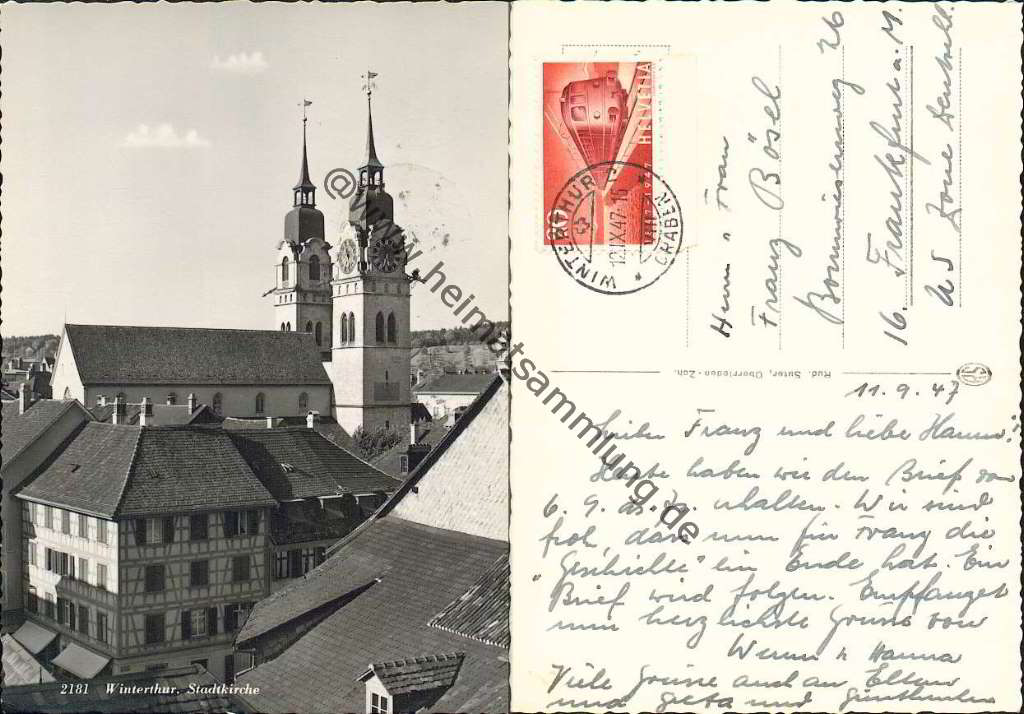 2181 Winterthur, Stadtkirche
@www.heimatsammlung.de
HELVETIA
1847 1947
WINTERTHUR 1
12.IX.47-16
GRABEN
Herrn u Frau
Franz Bösel
Bommersheimerweg 26
16. Frankfurt a. M.
US Zone Deutschl.
Rud. Suter, Oberrieden-Zch.
11.9.47
Lieber Franz und liebe Hanna!
Heute haben wir den Brief vom
6. 9. erhalten. Wir sind
froh, dass nun für Franz die
"Geschichte" ein Ende hat. Ein
Brief wird folgen. Empfanget
nun herzlichste Grüsse von
Werner u Hanna
Viele Grüsse auch an Eltern
und Greta und